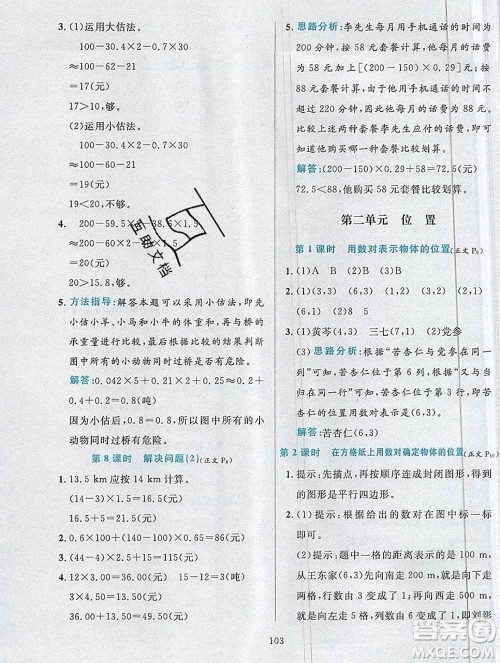 3. (1)运用大估法。
100-30.4×2-0.7×30
≈100-60-21
=19(元)
17>10,够。
(2)运用小估法。
100-30.4×2-0.7×30
≈100-60-21
=19(元)
19<20,不够。
4. 200-59.5-38.6×1.5
≈200-60-
=20(元)
20>15.8,够。
5. 方法指导:解答本题可以采用小估法,即先
小估小羊、小马和小牛的体重和,再与桥的
承重量进行比较,最后根据比较的结果判断
图中所有的小动物同时过桥有没有危险。
解答:0.042×5+0.21+0.4
≈0.2+0.2+0.4
=0.8(吨)
因为小估后,0.8=0.8,所以图中所有的小
动物同时过桥有危险。
第8课时 解决问题(2)(正文P8)
1. 13.5 km应按14 km计算。
(14-3)×1.5=16.5(元)
16.5+5=21.5(元)
2. 0.6×100+135×0.4=114(元)
3. (44-4)×2.5+12=112(元)
4. 12×3.00=36.00(元) 15-12=3(吨)
3×4.50=13.50(元)
36.00+13.50=49.50(元)
5. 思路分析:李先生每月用手机通话的时间为
200分钟,如果购买58元套餐,那么他每月
的话费为58元加上(200-150)分钟的费
用,按58元套餐计算,李先生每月的话费为
58元+[(200-150)×0.29]元;如果购买
88元套餐,由于他每月用手机通话的时间不
超过350分钟,所以他每月的话费为88元。
比较上述两种套餐李先生应付的话费,即可
求出他购买哪种套餐比较划算。
解答:(200-150)×0.29+58=72.5(元)
72.5<88,他购买58元套餐比较划算。
第二单元 位置
第1课时 用数对表示物体的位置(正文P9)
1. (1)A B (2)B
2. (1)(3,3) (2)(1,5) (6,1)
(3)(4,2) 18 5
3. (1)黄芩 三七(1,7) (2)党参
(3)思路分析:根据“苦杏仁与生地黄在同一
列”可知,苦杏仁位于第6列,根据“又与当归
在同一行”可知,苦杏仁位于第3行,所以苦
杏仁的位置是(6,3)。
解答:苦杏仁(6,3)
第2课时 在方格纸上用数对确定物体的位置(正文P10)
1. 提示:先描点,再按顺序连成封闭图形,得到
的图形是平行四边形。
2. (1)提示:根据给出的数对在图中标一标
即可。
(2)提示:题中一格的距离表示100 m,
从王东家(6,3)向南走200 m,就是向下走
两格,行数变成了1,再向东走500 m,就是
向右走五格,列数变成了11,即从刘影
103
互助文档
答案圈
MXQE.COM